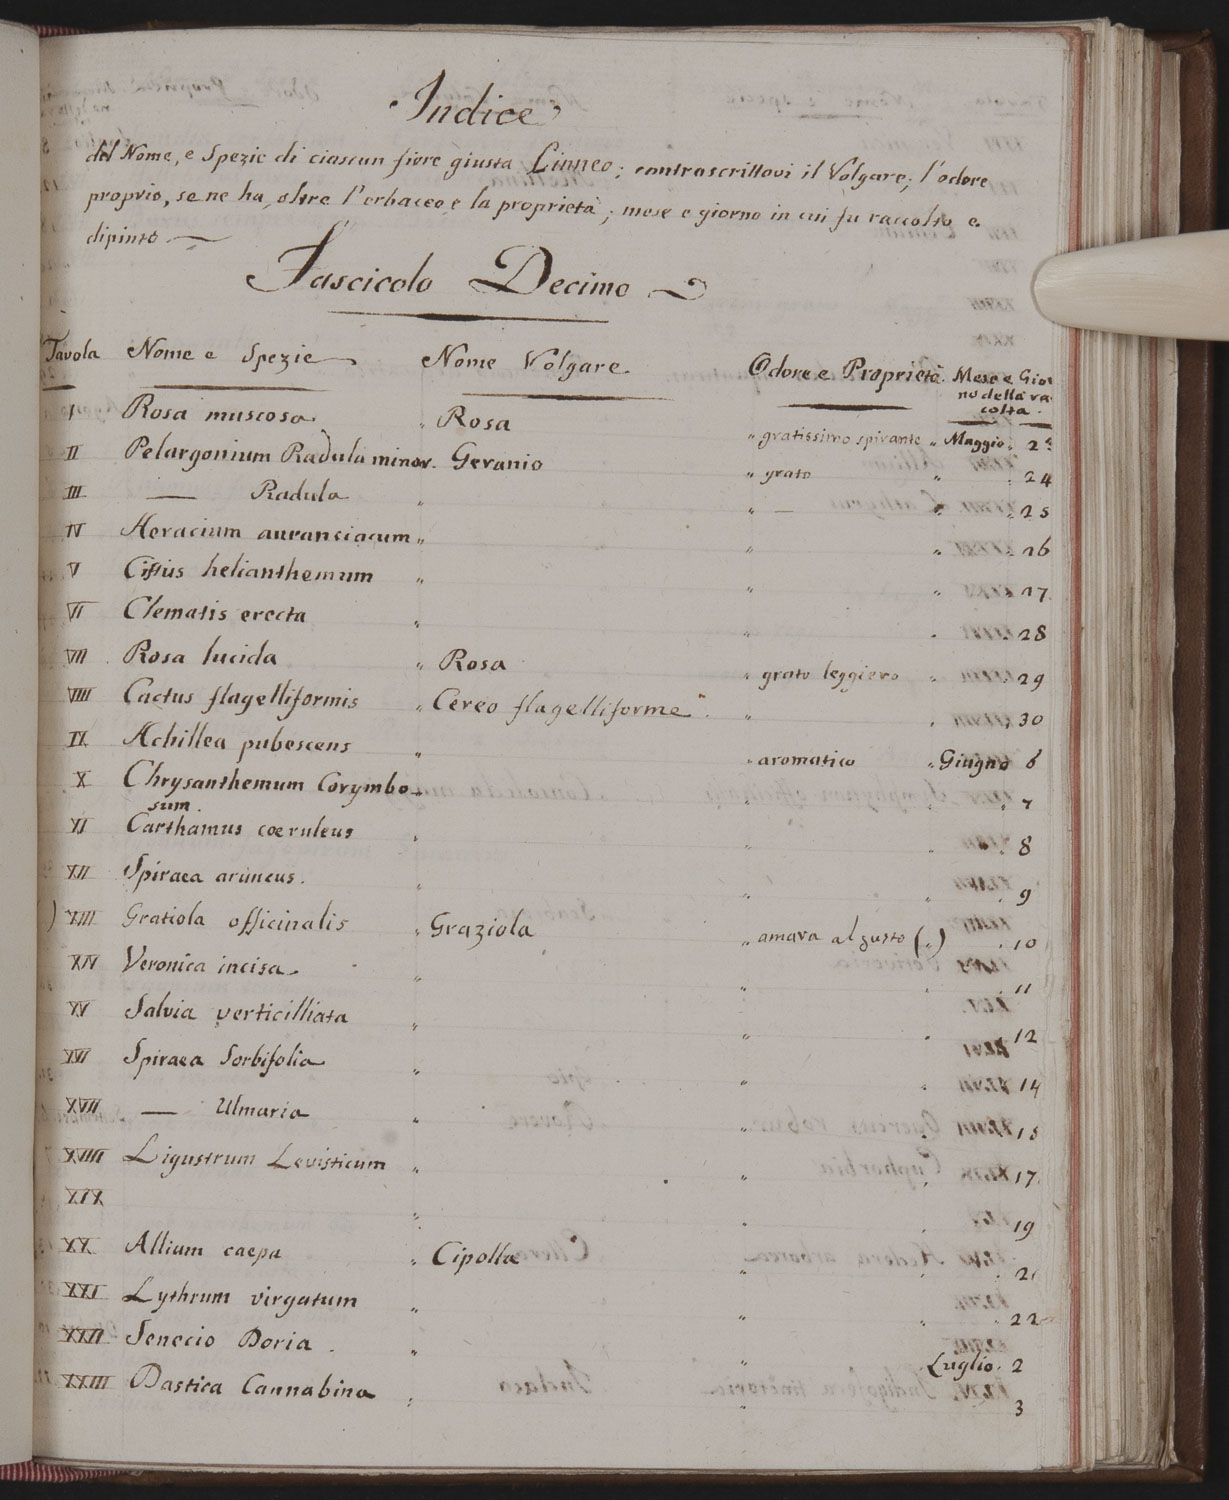 Indice
del Nome, e Spezie di ciascun fiore giusta Linneo; controscrittovi il Volgare; l'odore
proprio, se ne ha, oltre l'erbaceo, e la proprietà; mese e giorno in cui fu raccolto e
dipinto
Fascicolo Decimo
Tavola Nome e Spezie Nome Volgare Odore e Proprietà Mese e Gior
no della ra
colta.
I Rosa muscosa " Rosa " gratissimo spirante " Maggio. 2
II Pelargonium Radula minor. Geranio " grato " 24
III — Radula " " — " 25
IV Heracium auranciacum " " " 26
V Cistus helianthemum " " " 27
VI Clematis erecta " " " 28
VII Rosa lucida " Rosa " grato leggiero " 29
VIII Cactus flagelliformis " Cereo flagelliforme " " 30
IX Achillea pubescens " " aromatico " Giugno 6
X Chrysanthemum Corymbo- 7
sum.
XI Carthamus coeruleus " " " 8
XII Spiraea aruncus. " " " 9
) XIII Gratiola officinalis " Graziola " amara al gusto (") 10
XIV Veronica incisa " " " 11
XV Salvia verticilliata " " " 12
XVI Spiraea Sorbifolia " " " 14
XVII — Ulmaria " " " 15
XVIII Ligustrum Levisticum " " " 17
XIX " " " 19
XX Allium caepa " Cipolla " " 21
XXI Lythrum virgatum " " " 22
XXII Senecio Doria. " " Luglio. 2
XXIII Dastica Cannabina " " 3